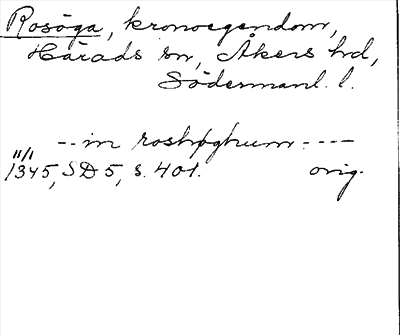 Rosöga, kronoegendom,
Härads sn, Åkers hd,
Södermanl. l.
-- in roshøghum ----
11/1
1345, SD 5, s. 401. orig.